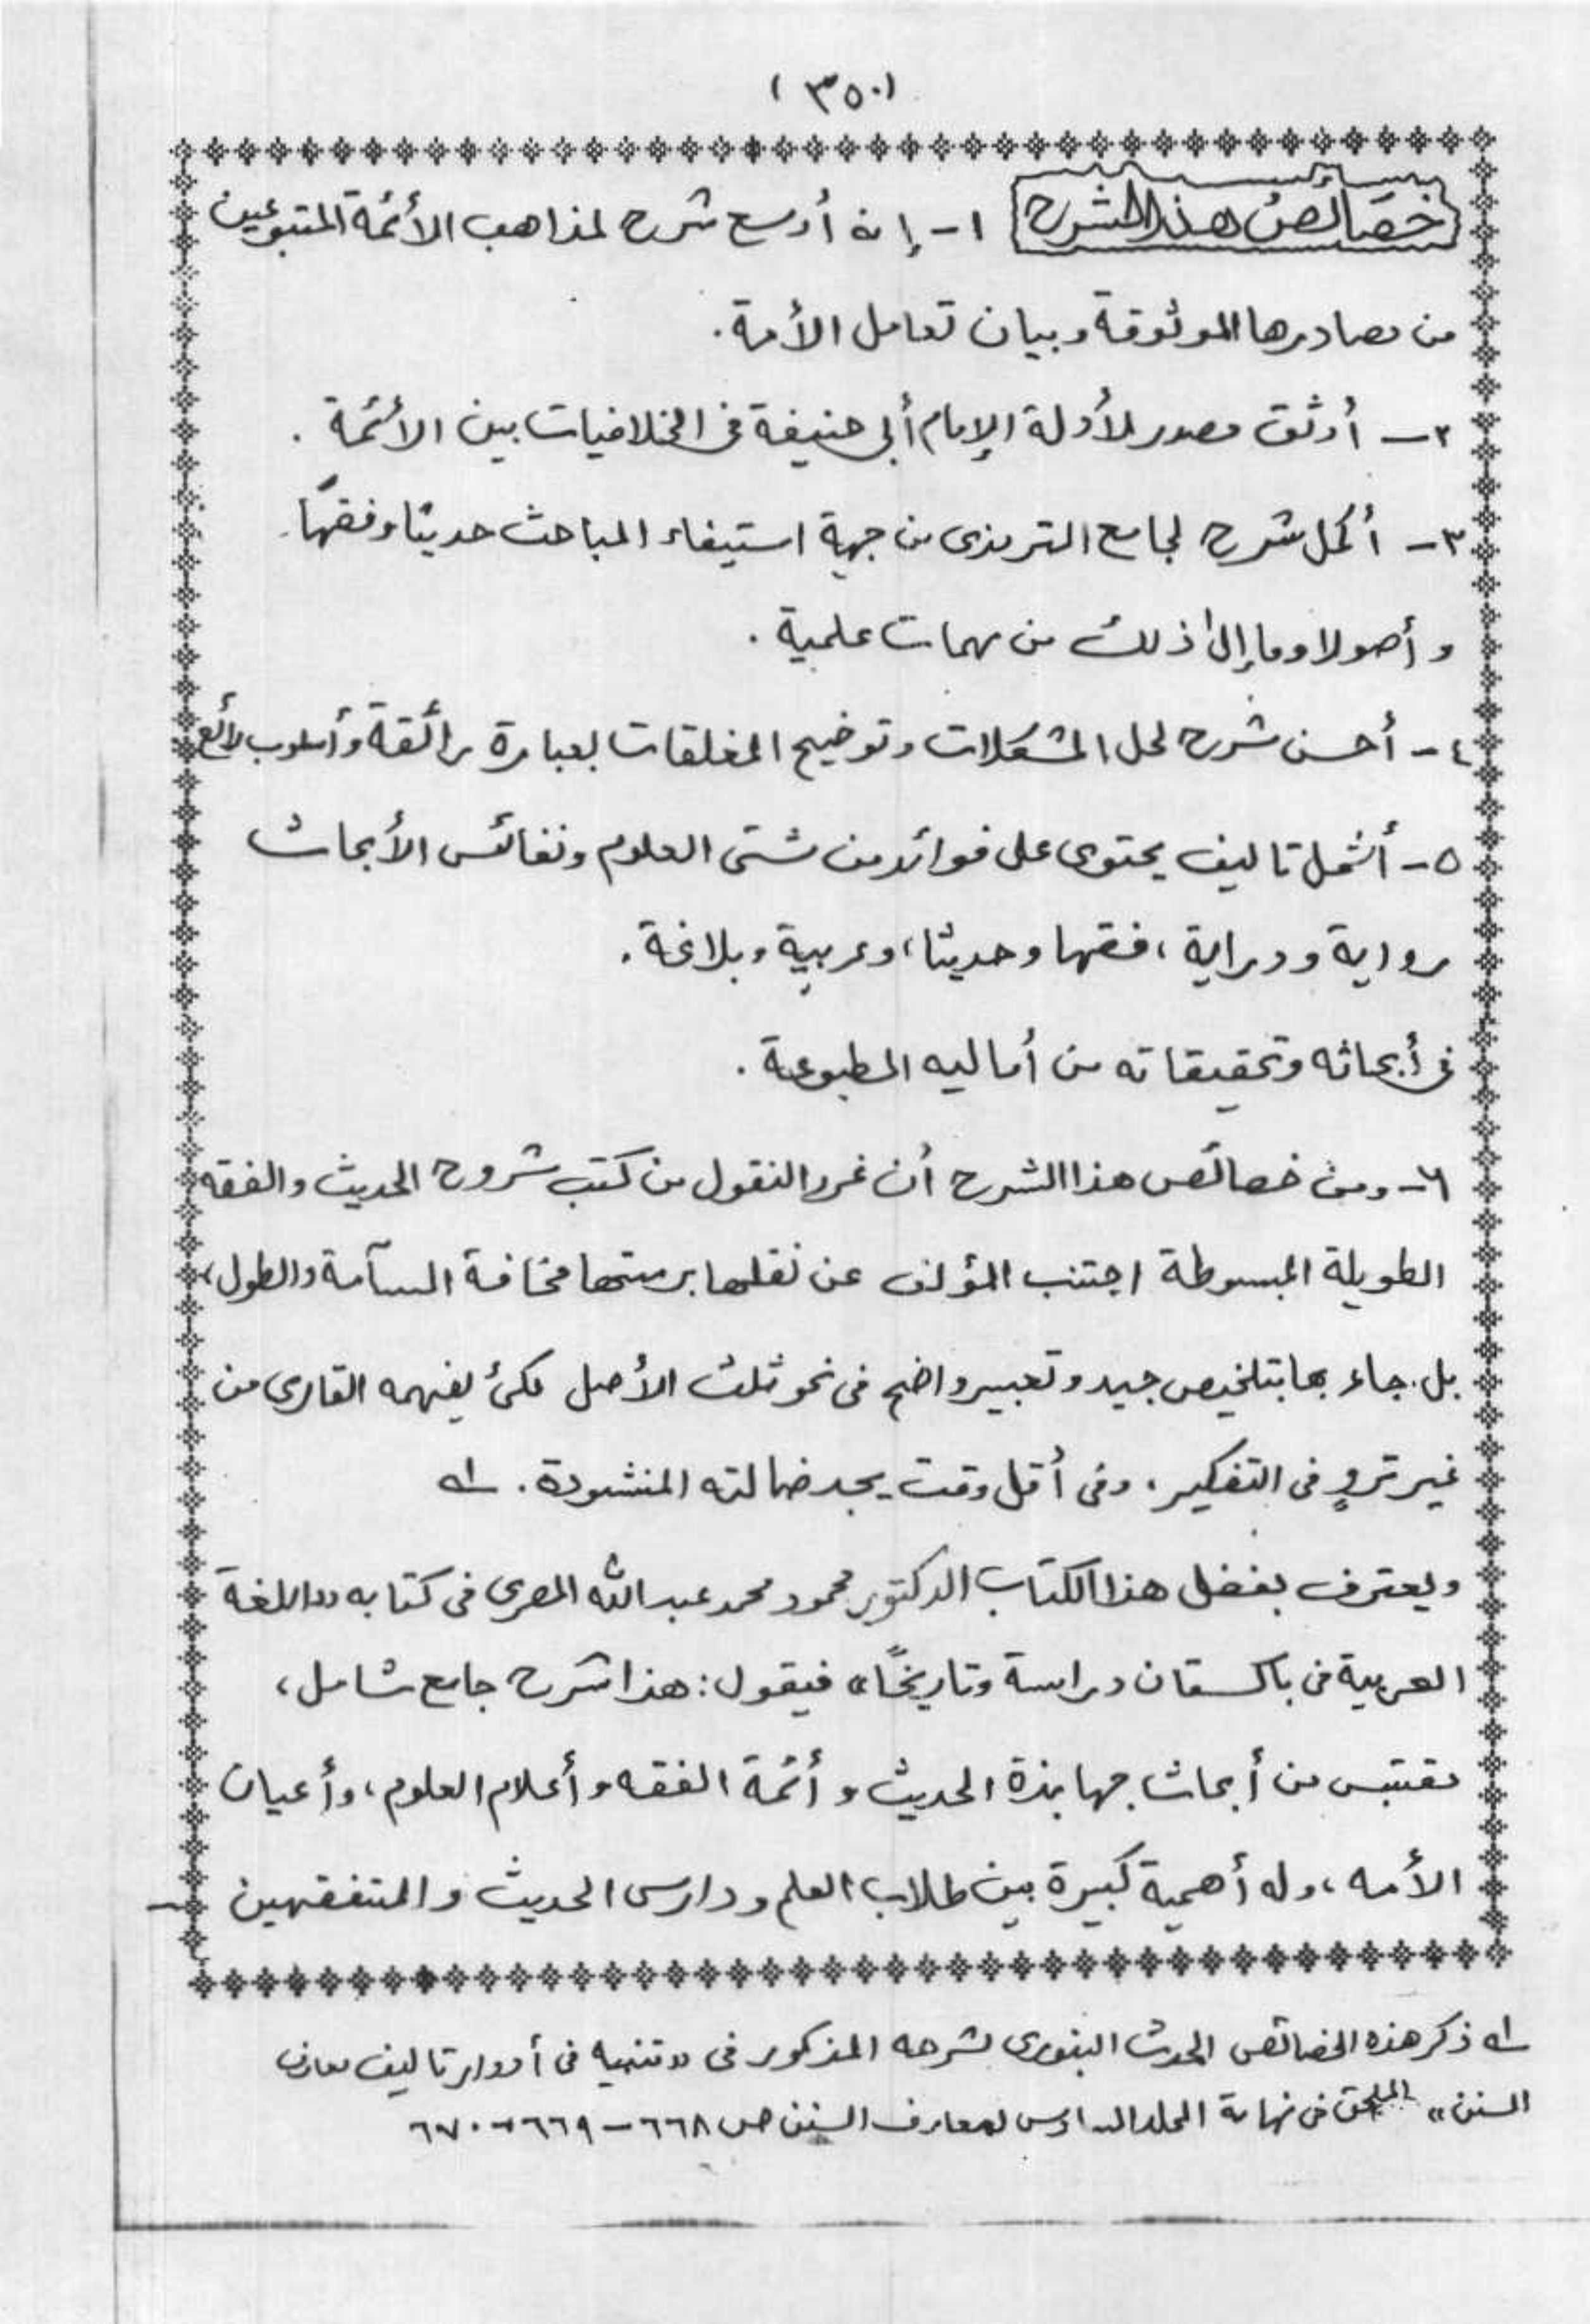 (٣٥٠)
خصائص هذا الشرح ١- إنه أوسع شرح لمذاهب الأئمة المتبوعين
من مصادرها الموثوقة وبيان تعامل الأمة.
٢- أوثق مصدر لأدلة الإمام أبى حنيفة فى الخلافيات بين الأئمة.
٣- أكمل شرح لجامع الترمذى من جهة استيفاء المباحث حديثا وفقهًا
وأصولا وما إلى ذلك من مهمات علمية.
٤- أحسن شرح لحل المشكلات وتوضيح المغلقات بعبارة رائقة وأسلوب رائع
٥- أشمل تاليف يحتوى على فوائد من شتى العلوم ونفائس الأبحاث
رواية ودراية، فقها وحديثا، وعربية وبلاغة.
فى أبحاثه وتحقيقاته من أماليه المطبوعة.
٦- ومن خصائص هذا الشرح أن غرر النقول من كتب شروح الحديث والفقه
الطويلة المبسوطة اجتنب المؤلف عن نقلها برمتها مخافة السآمة والطول،
بل جاء بها بتلخيص جيد وتعبير واضح فى نحو ثلث الأصل لكى يفهمه القارى من
غير تروٍ فى التفكير. وفى أقل وقت يجد ضالته المنشودة. ـ١ـه
ويعترف بفضل هذا الكتاب الدكتور محمود محمد عبدالله المصرى فى كتابه "اللغة
العربية فى باكستان دراسة وتاريخًا" فيقول: هذا شرح جامع شامل،
مقتبس من أبحاث جهابذة الحديث وأئمة الفقه وأعلام العلوم، وأعيان
الأمه، وله أهمية كبيرة بين طلاب العلم ودارس الحديث والمتفقهين
ـ١ـه ذكر هذه الخصائص المحدث البنورى لشرحه المذكور فى "تنبيه فى أدوار تاليف معارف
السنن" الملحق فى نهاية المجلد السادس لمعارف السنن ص ٦٦٨ - ٦٦٩ - ٦٧٠